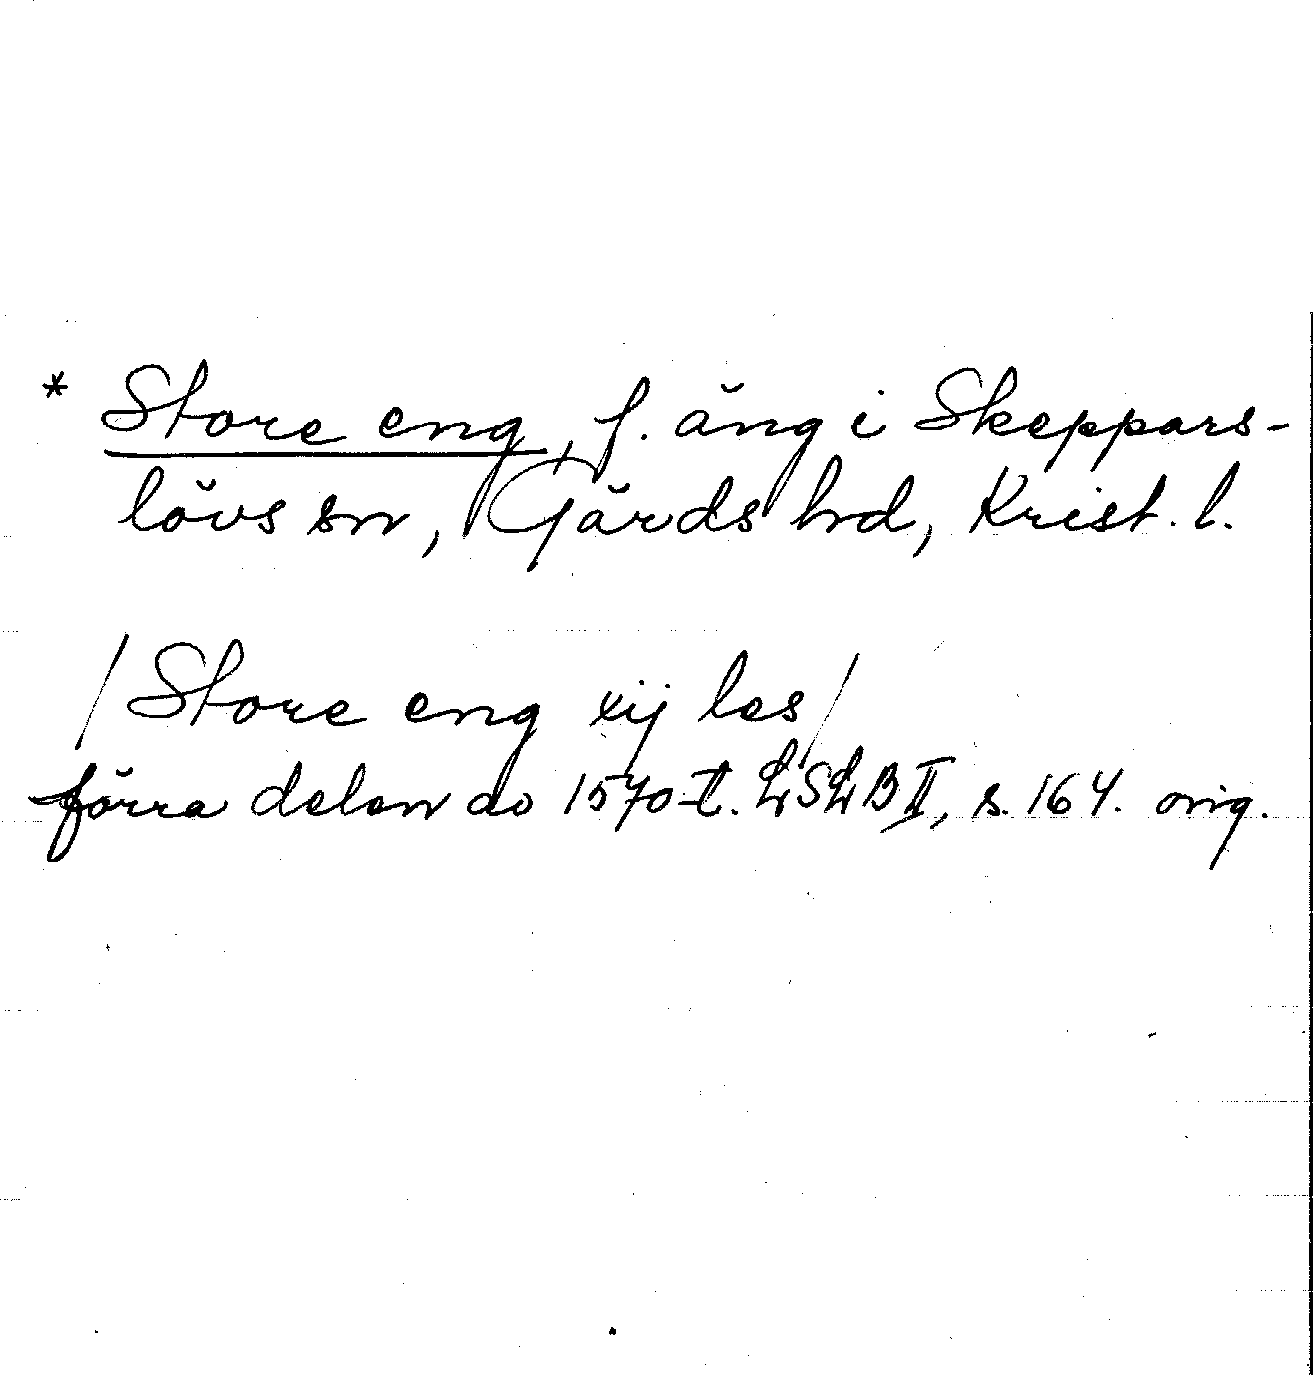 * Store eng, f. äng i Skeppars-
lövs sn, Gärds hrd, Krist. l.
/ Store eng xij les /
förra delen av 1570-t. LSLB II, s. 164. orig.